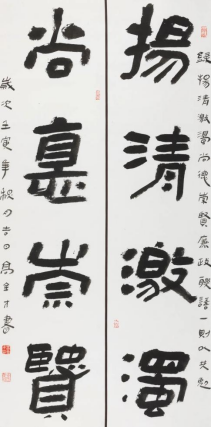 錄揚清激濁尚德崇賢廉政聯語一則以共勉
揚清激濁
尚悳崇賢
歲次壬寅年秋月吉日馬生才書